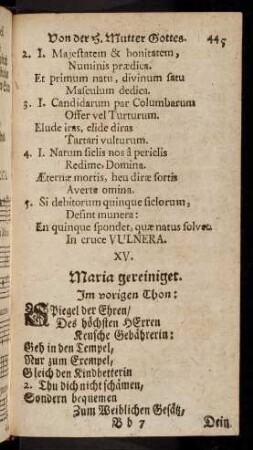 Von der H. Mutter Gottes. 445
2. I. Majestatem & bonitatem,
Numinis prædica.
Et primum natu, divinum satu
Masculum dedica.
3. I. Candidarum par Columbarum
Offer vel Turturum.
Elude iras, elide diras
Tartari vulturum.
4. I. Natum siclis nos â periclis
Redime, Domina.
Æternæ mortis, heu diræ sortis
Averte omina.
5. Si debitorum quinque siclorum,
Desint munera:
En quinque spondet, quæ natus solvet.
In cruce VULNERA.
XV.
Maria gereiniget.
Im vorigen Thon:
SPiegel der Ehren/
Des höchsten HErren
Keusche Gebährerin:
Geh in den Tempel,
Nur zum Exempel,
Gleich den Kindbetterin
2. Thu dich nicht schämen,
Sondern bequemen
Zum Weiblichen Gesätz,
B b 7 Dein